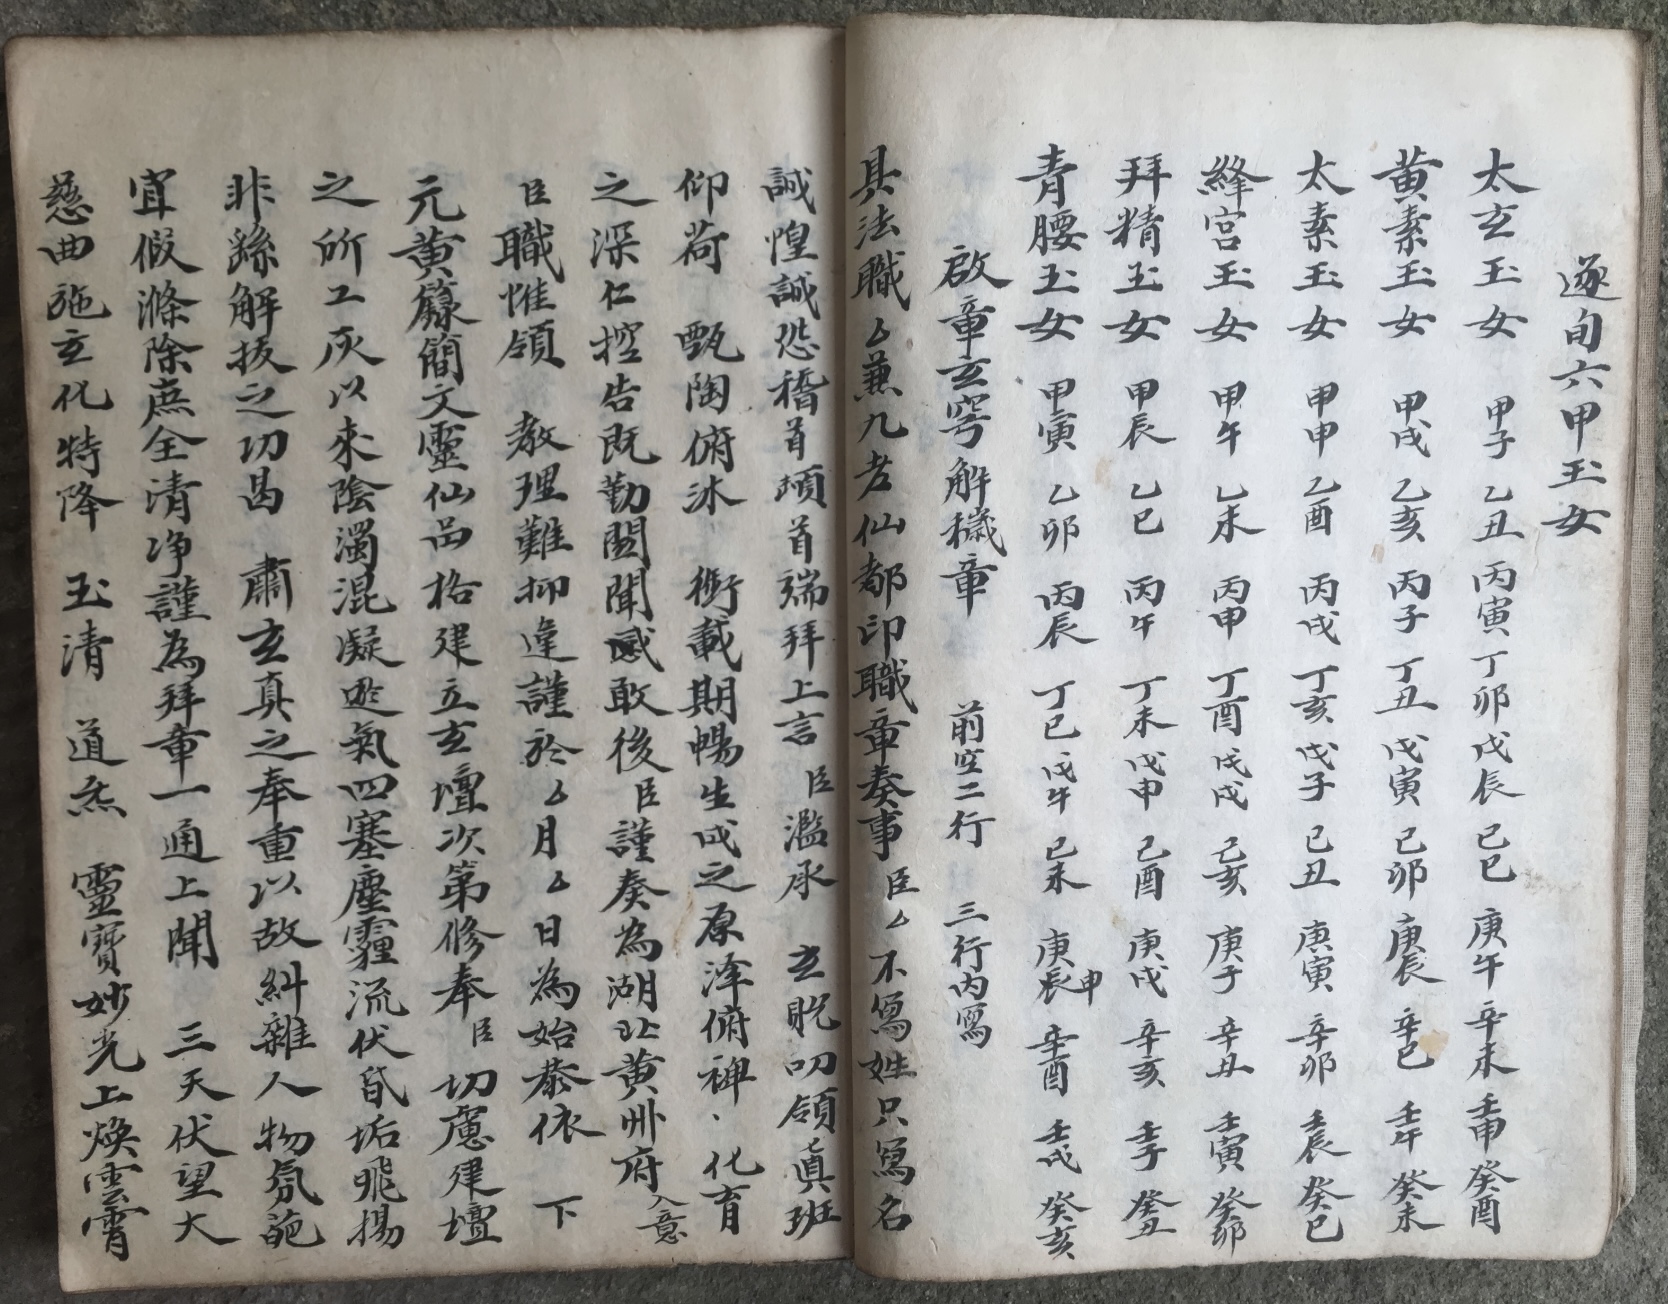 逐旬六甲玉女
太玄玉女 甲子 乙丑 丙寅 丁卯 戊辰 己巳 庚午 辛未 壬申 癸酉
黄素玉女 甲戌 乙亥 丙子 丁丑 戊寅 己卯 庚辰 辛巳 壬午 癸未
太素玉女 甲申 乙酉 丙戌 丁亥 戊子 己丑 庚寅 辛卯 壬辰 癸巳
絳宮玉女 甲午 乙未 丙申 丁酉 戊戌 己亥 庚子 辛丑 壬寅 癸卯
拜精玉女 甲辰 乙巳 丙午 丁未 戊申 己酉 庚戌 辛亥 壬子 癸丑
青腰玉女 甲寅 乙卯 丙辰 丁巳 戊午 己未 庚辰申 辛酉 壬戌 癸亥
啟章玄穹解穢章 前空二行 三行内寫
具法職厶兼九老仙都印職章奏事臣厶不寫姓只寫名
誠惶誠恐稽首頓首端拜上言臣濫承 玄貺叨領真班
仰荷 甄陶俯沐 衡載期暢生成之原泽俯裨、化育
之深仁控告既勤闓聞感敢後臣謹奏為湖北黄州府入意
臣職惟領 教理難抑違謹於厶月厶日為始恭依 下
元黄籙簡文靈仙品格建立玄壇次第修奉臣切慮建壇
之所工灰以來陰濁混凝逆氣四塞塵霾流伏氐垢飛揚
非繇解拔之功曷 肅玄真之奉重以故糾雜人物氛葩
宜假滌除庶全清净謹為拜章一通上聞 三天伏望大
慈曲施玄化特降 玉清 道炁 靈寶妙光上煥雲霄